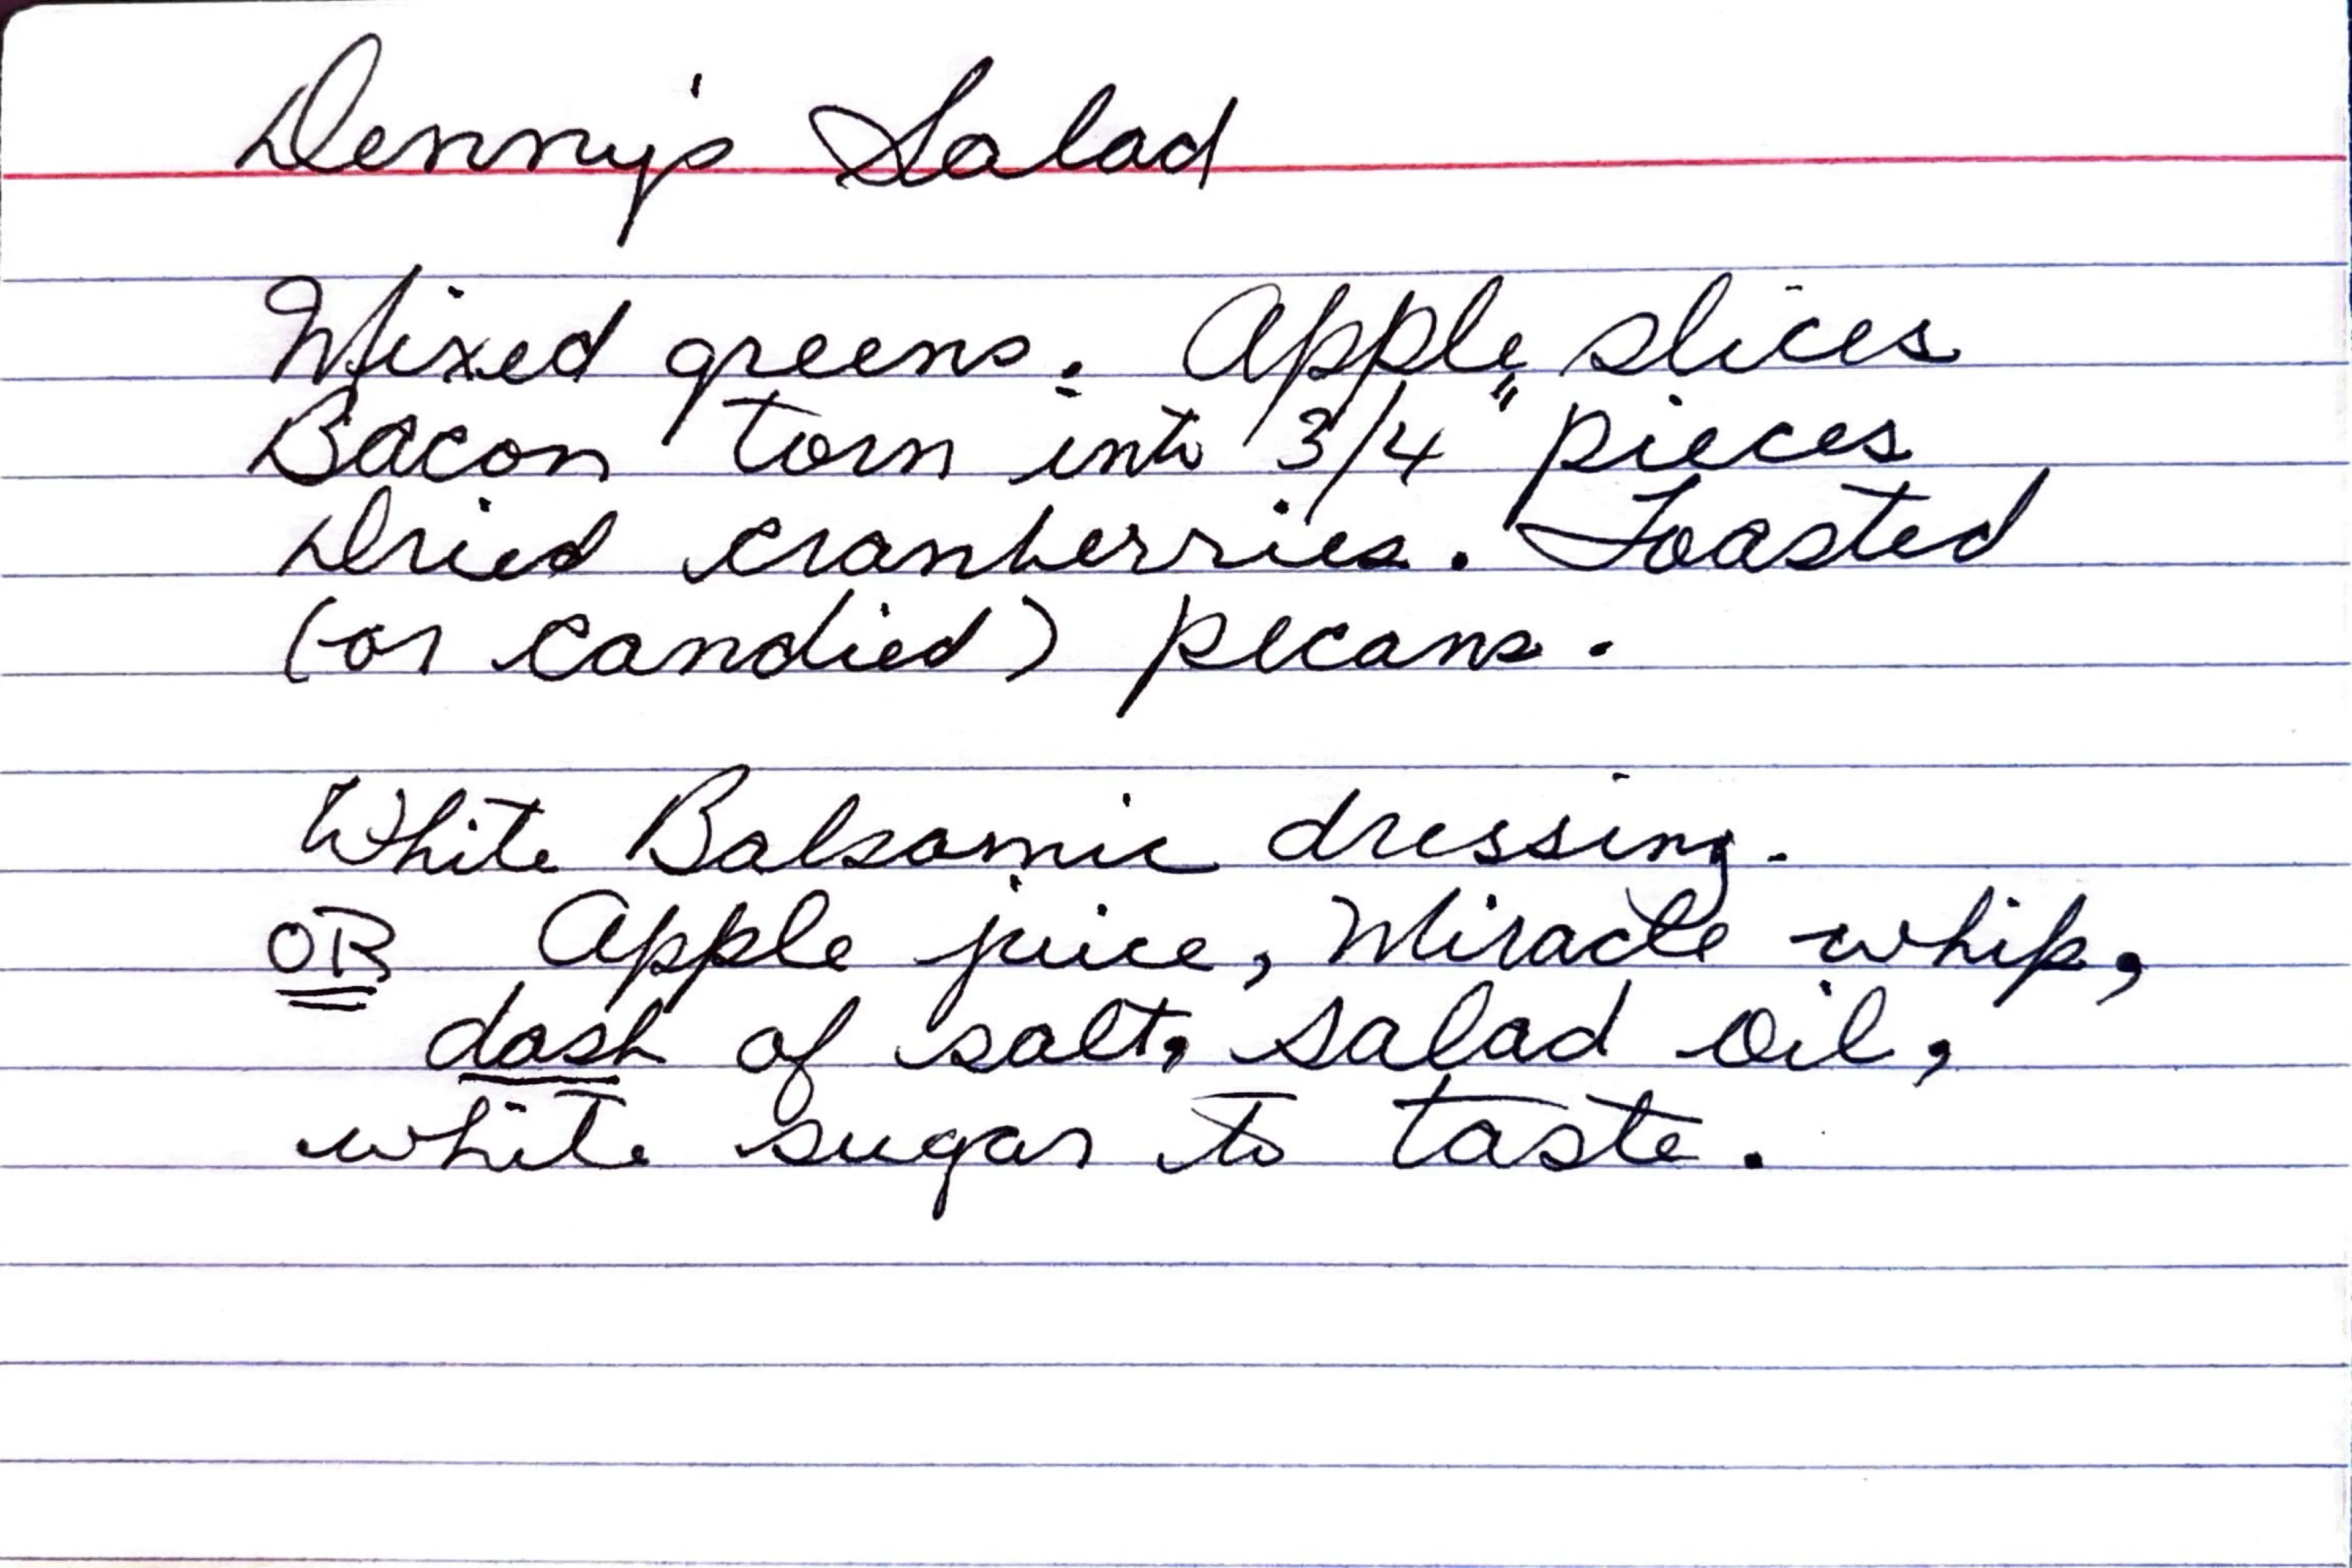 Denny's Salad
Mixed greens. Apple slices
Bacon torn into 3/4" pieces
Dried cranberries. Toasted
(or candied) pecans.
White Balsamic dressing.
OR Apple juice, Miracle whip,
dash of salt, salad oil,
white sugar to taste.